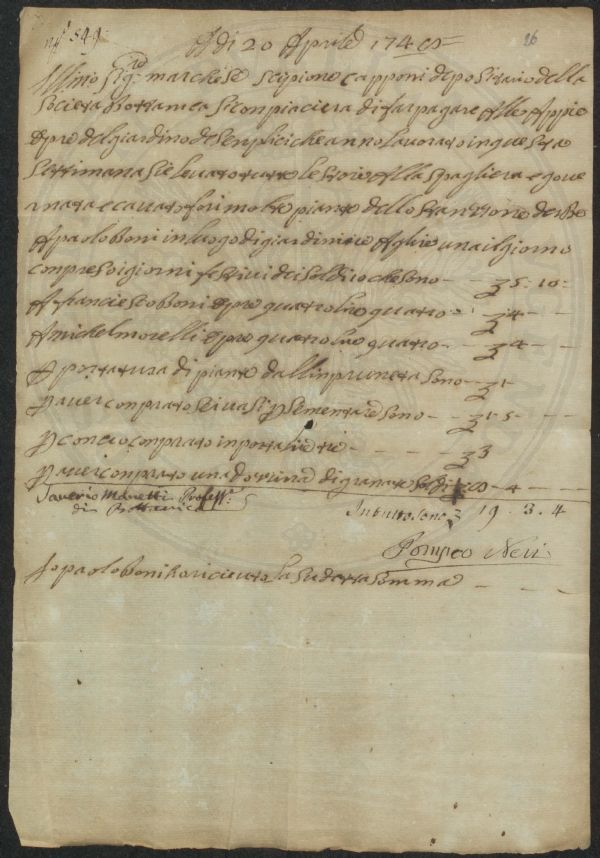 n° 549: 26
A di 20 Aprile 1748
Ill.mo Sig.re marchese Scipione Capponi depositario della
Società Bottanica Si conpiacierà di far pagare Alle Appie
Opre del giardino de Senplici che anno lavorato in questa
Settimana Si è levato tutte le stoie Alla Spagliera e gove
rnata e cavato fori molte piante dello Stanzone de
A paolo Boni in luogo di giardiniere A Lire una il giorno
conpreso i giorni festivi di Soldi 10 che sono - - 5 - 10 -
A franciesco Boni Opre quatro lire quatro - 4 - -
A michel morelli Opre quatro lire quatro - - 4 - -
A portatura di piante dall'inpruneta sono - 1 -
P aver conprato sei vasi P Sementare sono - - 1 - 5 - - -
P concio conprato inporta lire tre - - - - - 3
P aver conprato una dozzina di granate Soldi 8 - 4 - - -
Saverio Manetti Profess.e
di Bottanica
In tutto sono 19 . 3 . 4
Pompeo Neri
Io paolo Boni ho ricieuto la Sudetta Somma - - -